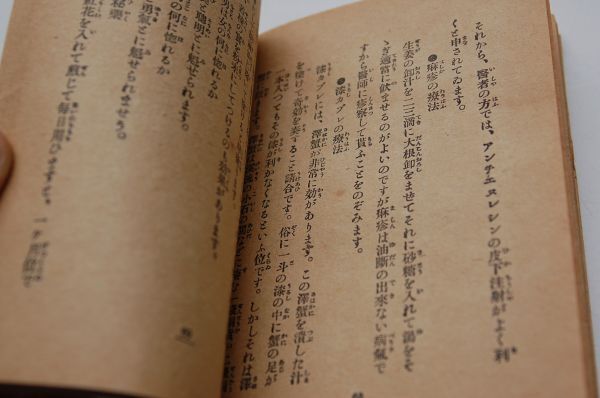 それから、醫者の方では、アンチエスレレンの皮下注射がよく利
くと申されてゐます。
●痳疹の療法
生姜の卸汁を二三滴に大根卸をまぜてそれに砂糖を入れて湯をそ
ゝぎ適當に飲ませるのがよいのですが痳疹は油斷の出來ない病氣で
すから醫師に診察して貰ふことをのぞみます。
●漆カブレの療法
漆カブレには、澤蟹が非常に効があります。この澤蟹を潰した汁
を塗けて奇効を奏すること請合です。俗に一斗の漆の中に蟹の足が
一本入つてもその漆が利かなくなるといふ位です。しかしそれは澤
があります。
男は女の何に惚れるか
聰明に魅せられます。
の何に惚れるか
勇氣とに魅せられませう。
秘藥
紅花を入れて煎じて毎日用ひますと、一ケ